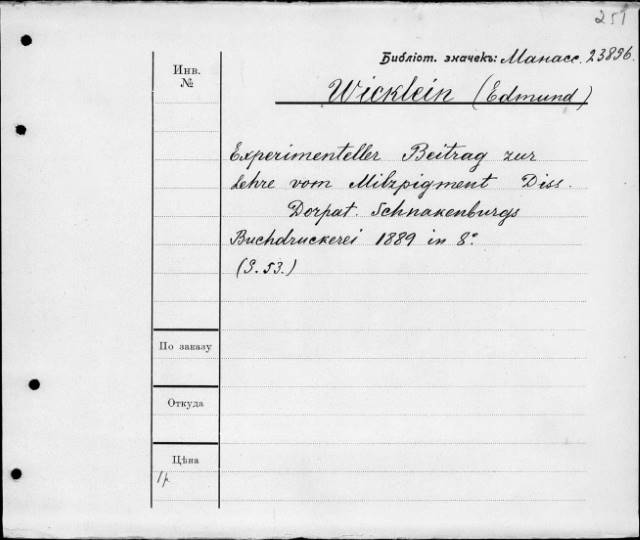 251
Библіот. значекъ: Манасс. 23896.
Инв.
№
Wicklein (Edmund)
Experimenteller Beitrag zur
Lehre vom Milzpigment Diss.
Dorpat. Schnakenburgs
Buchdruckerei 1889 in 8°
(S. 53.)
По заказу
Откуда
Цѣна
1р.